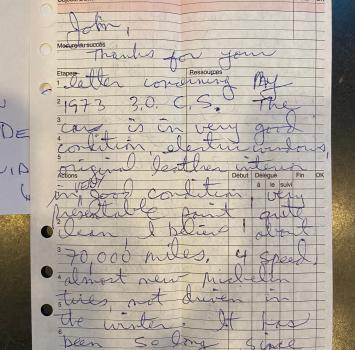 John,
Mesure du succès
Thanks for your
Etapes Ressources
1 letter concerning my
2 1973 3.0. C.S. The
3 car is in very good
4 condition, electric windows,
5 original leather interior
Actions Début Délégué Fin OK
à le suivi
in very good condition, very
presentable paint quite
clean I believe about
3 70,000 miles. 4 speed,
4 almost new Michelin
5 tires, not driven in
the winter. It has
been so long since